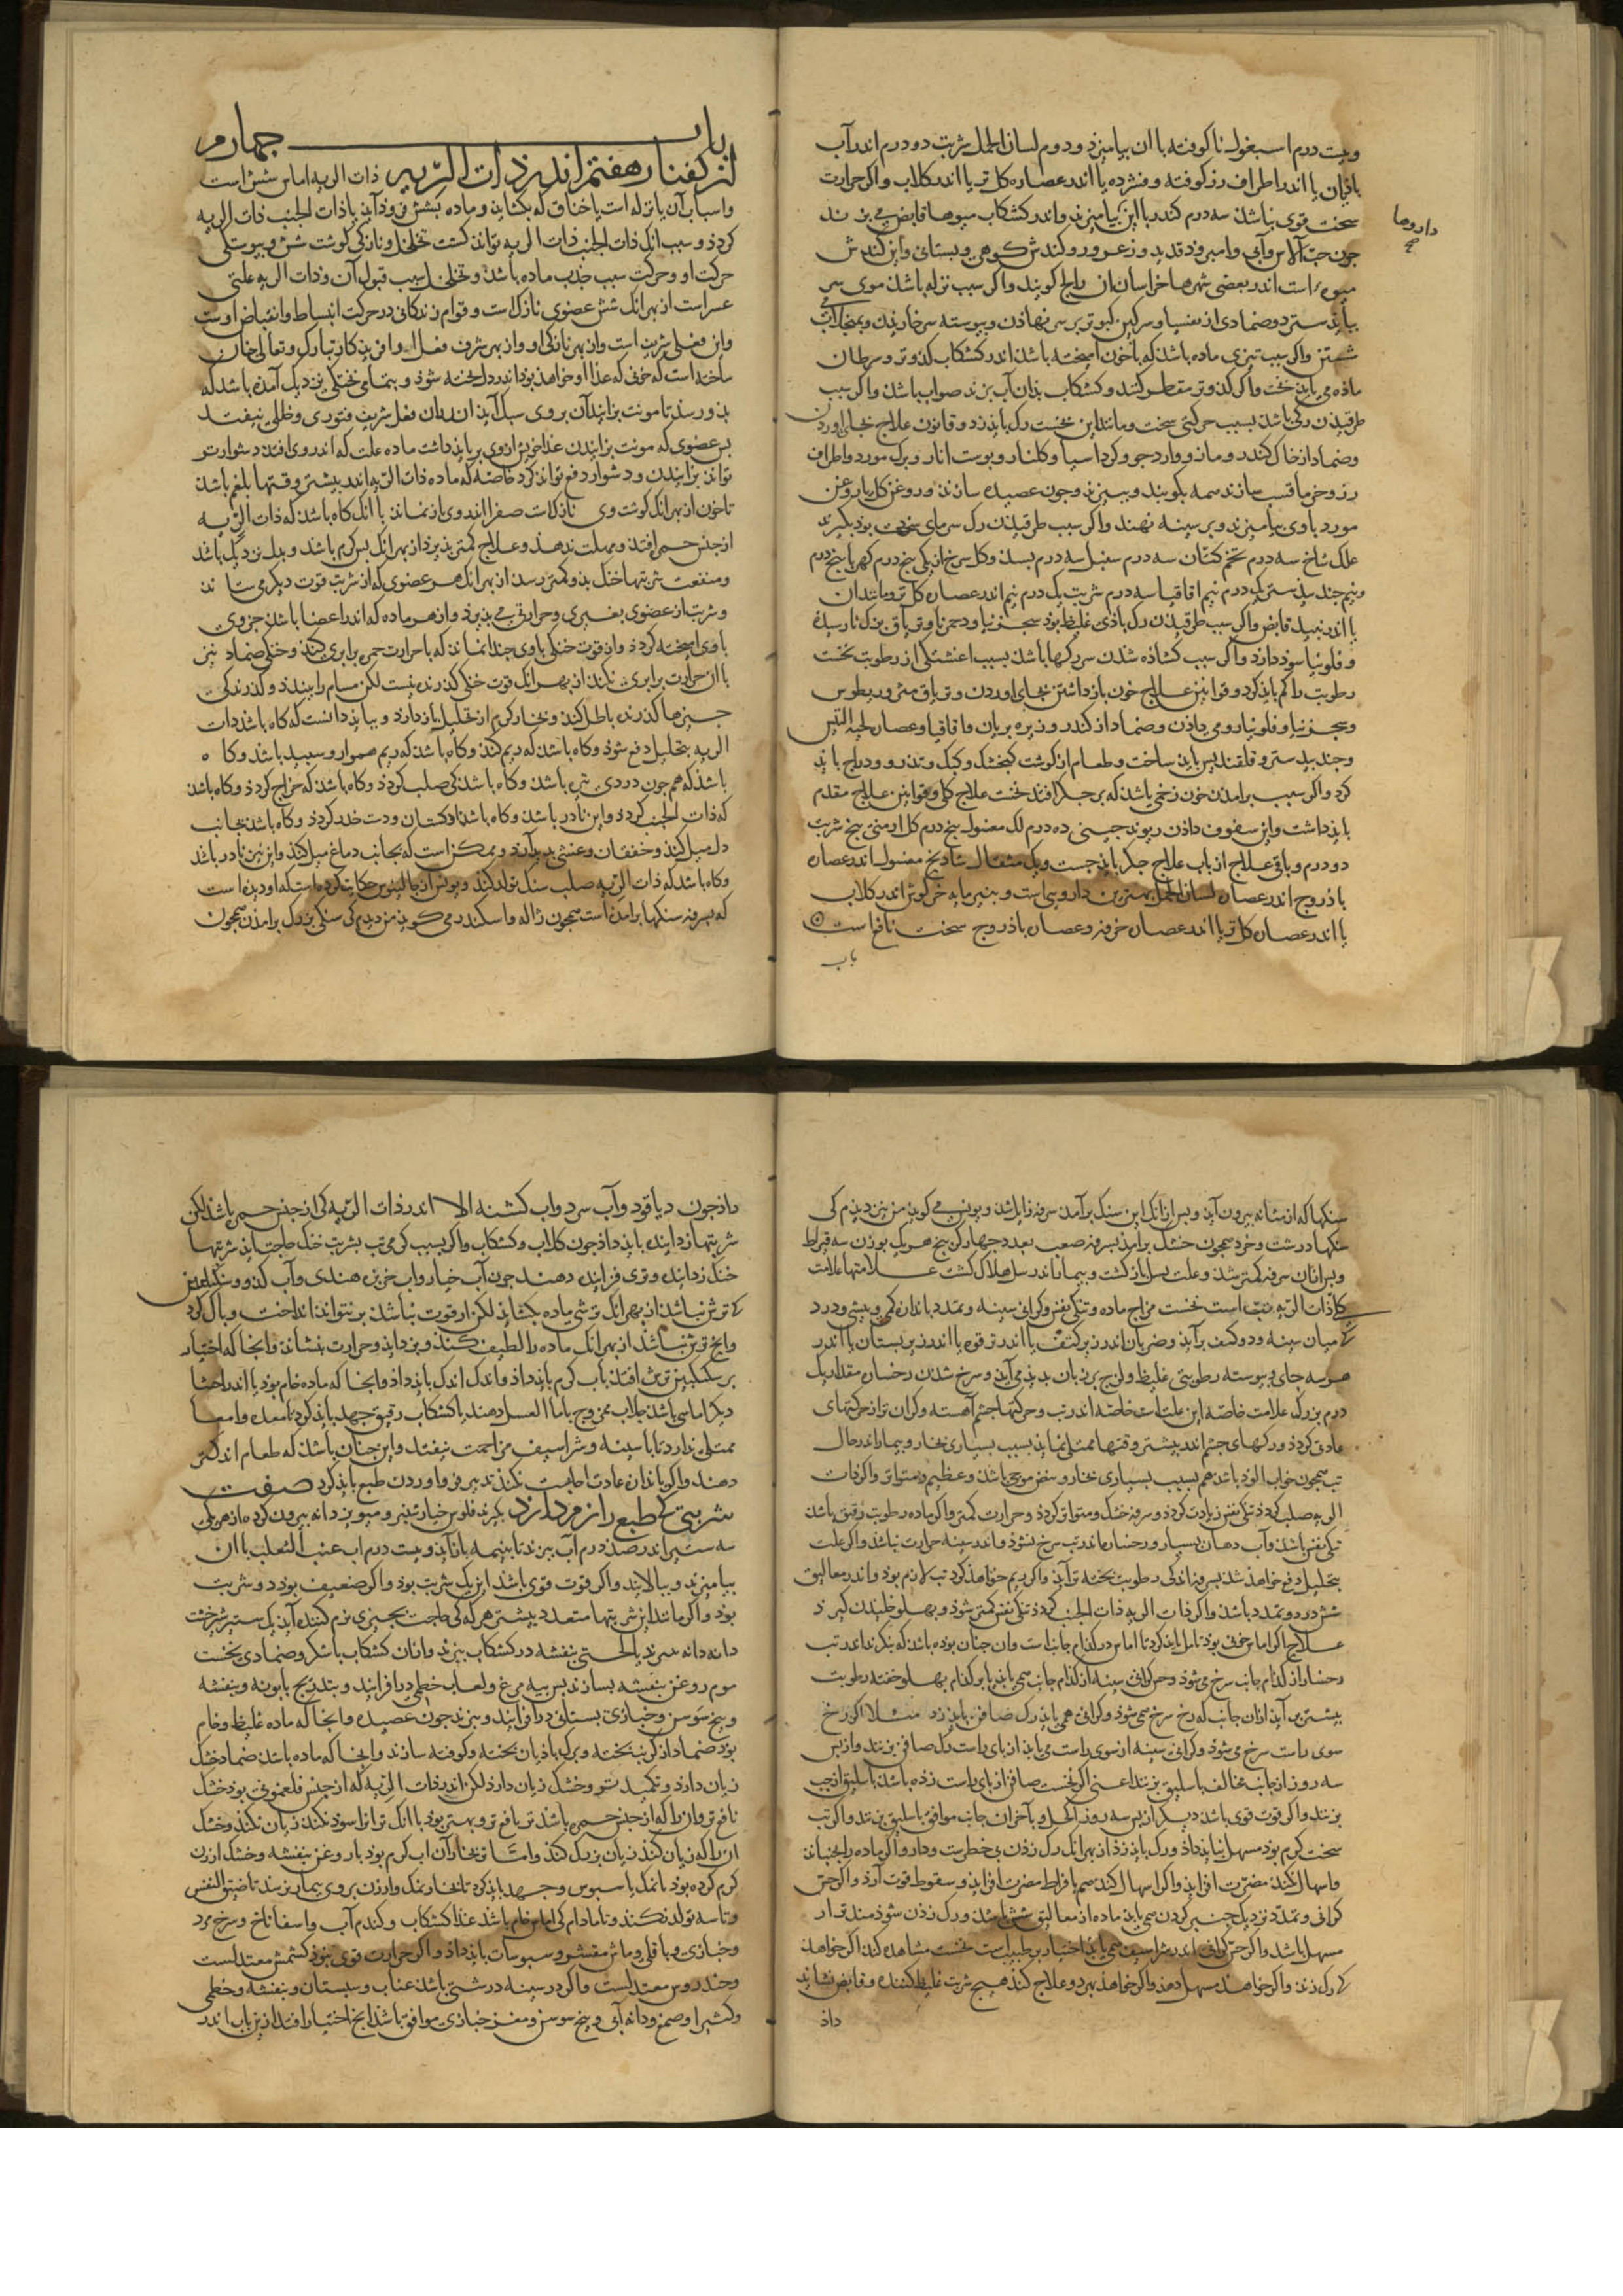 وبیست درم اسبغول ناکوفته باآن بیامیزد و دوم لسان الحمل شربت دو درم اندر آب
باذیان یا اندر اطراف رز کوفته و فشرده یا اندر عصاره کل تر یا اندر کلاب واکر حرارت
سخت قوی نباشذ سه درم کندر بااین بیامیزند و اندر کشکاب میوها قابض می بزند
داروها
چون حب الآس وآبی وامروذ قدید و زعرور و کندش کوهی و بستانی واین کندش
میوه است اندر بعضی شهرها خراسان آن را کویند واکر سبب نزله باشذ موی سر
ببایذ ستردن وضمادی از سرکین کبوتر بر سر نهاذن و پیوسته سر خاریدن
شستن واکر سبب تیزی ماده باشذ که باخون آمیخته باشذ اندر کشکاب کذو تر و سرطان
ماذه می بایذ بخت واکر کذو تر مقطر کنند و کشکاب بذان آب بزند صواب باشذ واکر سبب
طرقیدن رکی باشذ بسبب حرکتی سخت و مانند این نخست رک بایذ زد و قانون علاج بجای آوردن
وضماد از خاک کندر و مازو و ارد جو و کرد آسیا و کلنار و پوست انار و برک مورد و اطراف
رز و خرما قسب سازند همه بکوبند و ببیزند و چون عصیده سازند و روغن کل یا روغن
مورد باوی بیامیزند و بر سینه نهند واکر سبب طرقیدن رک سرمای سخت بود بکیرند
علک شاخ سه درم تخم کتان سه درم سنبل سه درم بسذ و کل سرخ از یکی پنج درم کهربا پنج درم
ونیم جند بیدستر یک درم نیم اقاقیا سه درم شربت یک درم نیم اندر عصاره کل تر و مانند آن
یا اندر نبیذ قابض واکر سبب طرقیدن رک باذی غلیظ بود سجزنیا و دحمرنا و تریاق بزرک نارسیده
و فلونیا سوذ دارذ واکر سبب کشاذه شدن سر رکها باشذ بسبب اغشتکی از رطوبت نخست
رطوبت را کم بایذ کرد و قوانین علاج خون باز داشتن بجای آوردن و تریاق مثرودیطوس
وسجزنیا و فلونیا رومی داذن وضماد از کندر و زیره بریان واقاقیا و عصاره لحیه التیس
وجند بیدستر و قلقند پس باید ساخت و طعام از کوشت کنجشک و کبک و تذرو و دراج بایذ
کرد واکر سبب برامدن خون زخمی باشذ که بر جکر افتذ نخست علاج کلی و قوانین علاج مقدم
بایذ داشت واین سفوف داذن ریوند چینی ده درم لک مغسول پنج درم کل ارمنی پنج شربت
دو درم و باقی علاج از باب علاج جکر بایذ جست ویک مثقال شاذنج مغسول اندر عصاره
باذروج اندر عصاره لسان الحمل بهترین دارویی است و بنیر مایه خرکوش اندر کلاب
یا اندر عصاره کل تر یا اندر عصاره خرفه و عصاره باذروج سخت نافع است
باب
باب چهارم
از کفتار هفتم اندر ذات الریه ذات الریه اماس شش است
واسباب آن یا نزله است یا خناق که بکشاید و ماده بشش فروذ آید یا ذات الجنب ذات الریه
کردذ وسبب آنک ذات الجنب ذات الریه تواند کشت تخلخل و نازکی کوشت شش و پیوستکی
حرکت او وحرکت سبب جذب ماده باشذ و تخلخل سبب قبول آن وذات الریه علتی
عسر است از بهر آنک شش عضوی نازک است و قوام زندکانی در حرکت انبساط و انقباض اوست
واین فعلی شریف است واز بهر نازکی او واز بهر شرف فعل او آفریذکار تبارک و تعالی چنان
ساخته است که خونی که غذا او خواهذ بوذ اندر دل پخته شوذ و بتمامی پختکی نزدیک آمده باشذ که
بذو رسذ تا مونت پزانیدن آن بر وی سبک آید اندر آن فعل شریف فتوری و خللی نیفتد
پس عضوی که مونت پزانیدن غذا خویش از وی بر باید داشت ماده علت که اندر وی افتذ دشوار تر
تواند پزانیدن و دشوار دفع تواند کرد خاصه که ماده ذات الریه اندر بیشتر وقتها بلغم باشذ
تا خون از بهر آنک کوشت وی نازک است صفرا اندر وی باز نماند باآنک کاه باشذ که ذات الریه
از جنس حمره افتذ و مهلت ندهذ وعلاج کمتر پذیرذ از بهر آنک بس کرم باشذ و بدل نزدیک باشذ
ومنفعت شربتهاء خنک بذو کمتر رسذ از بهر آنک هر عضوی که از شربت قوت دیکر می ستانذ
وشربت از عضوی بغیری وحرارتی می پذیرذ واز هر ماده که اندر اعضا باشذ جزوی
باوی آمیخته کردذ واز قوت خنکی باوی چندان نماند که باحرارت حمره برابری کنذ و خنکی ضماد نیز
باآن حرارت برابری نکند از بهر آنک قوت خنکی کذرنده نیست لکن مسام را ببندذ و کذر ندهذ
چیزهاء کذرنده باطل کنذ و بخار کرم از تحلیل باز دارذ و ببایذ دانست که کاه باشذ ذات
الریه بتحلیل دفع شوذ و کاه باشذ که ریم کنذ و کاه باشذ که ریم هموار و سپید باشذ و کاه
باشذ که همچون دردی شراب باشذ و کاه باشذ کی صلب کردذ و کاه باشذ که خراج کردذ و کاه باشذ
که ذات الجنب کردذ واین نادر باشذ و کاه باشذ کتف و دست خدر کردذ و کاه باشذ بجانب
دل میل کنذ و خفقان و غشی پدید آرذ و ممکن است که بجانب دماغ میل کنذ واین نیز نادر باشذ
وکاه باشذ که ذات الریه صلب سنک تولد کنذ و بولس از جالینوس حکایت کرده است که او دیده است
که بسرفه سنکها برآمذه است همچون ژاله و اسکندر می کوید من دیدم کی سنکی بزرک برامدن همچون
سنکها که از مثانه بیرون آید وپس از آنک این سنک برآمد سرفه زایل شذ و بولس می کوید من نیز دیذم کی
سنکها درشت و خرد همچون خشک برآمذ بسرفه صعب بعدد چهار کی پنج هر یک بوزن سه قیراط
وپس از آن سرفه کمتر شذ وعلت سل باز کشت و بیمار اندر سل هلاک کشت علامتها علامت
کلی ذات الریه تب است نخست مزاج ماده و تنکی نفس و کرانی سینه و تمدد باندازه کمی و بیشی و درد
کی میان سینه و دو کتف برآید وضربان اندر زیر کتف یا اندر ترقوه یا اندر زیر پستان یا اندر
هر سه جای و پیوسته رطوبتی غلیظ ولزج بر زبان پدید می آید و سرخ شدن رخساره مقدار یک
درم بزرک علامت خاصه این علت است خاصه اندر تب و حرکتهاء چشم آهسته و کران تر از حرکتهای
عادتی کردذ و رکهای چشم اندر بیشتر وقتها ممتلی نماید بسبب بسیاری بخار و بیمار اندر حال
تب همچون خواب آلوذ باشذ هم بسبب بسیاری بخار و نبض موجی باشذ و عظیم و متواتر واکر ذات
الریه صلب کردذ تنکی نفس زیادت کردذ و سرفه خشک و متواتر کردذ وحرارت کمتر واکر ماده رطوبت رقیق باشذ
تنکی نفس باشذ وآب دهان بسیار و رخساره اندر تب سرخ نشوذ و اندر سینه حرارت نباشذ واکر علت
بتحلیل دفع خواهذ شذ بسرفه اندکی رطوبت پخته برآید واکر ریم خواهذ کرد تب لازم بوذ واندر معالیق
شش درد و تمدد باشذ واکر ذات الریه ذات الجنب کردذ تنکی نفس کمتر شوذ و بهلو خلیدن کیرذ
علاج اکر اماس خونی بوذ تامل باید کرد تا اماس در کدام جانب است وآن چنان بوذ باشذ که بنکرند اندر تب
رخسار از کدام جانب سرخ می شوذ و حس کرانی سینه از کدام جانب همی یابد یا بر کدام پهلو خفته رطوبت
بیشتر برمی آید از آن جانب که رخ سرخ همی شوذ و کرانی همی یابد رک صافن باید زد مثلا اکر رخ
سوی راست سرخ می شوذ و کرانی سینه از سوی راست می یابد از پای راست رک صافن بزنند واز پس
سه روز از جانب مخالف باسلیق بزنند اعنی اکر نخست صافن از پای راست زده باشذ باسلیق از چپ
بزنند واکر قوت قوی باشذ دیکر از پس سه روز اکحل و بآخر از آن جانب موافق باسلیق بزنند واکر تب
سخت کرم بوذ مسهل نبایذ داذ و رک بایذ زذ از بهر آنک رک زذن بی خطر است و دارو اکر ماده را بجنباند
واسهال نکند مضرت افزاید واکر اسهال کند هم بافراط مضرت افزاید و سقوط قوت آرذ واکر حس
کرانی و تمدد نزدیک چنبر کردن همی یابد ماده از معالیق شش باشذ و رک زذن سوذمند تر از
مسهل باشد واکر حس کرانی اندر شراسیف همی یابد اختیار بر طبیب است نخست مشاهده کند اکر خواهذ
رک زند واکر خواهد مسهل دهذ واکر خواهذ بهر دو علاج کنذ هیچ شربت غلیظ کننده و قابض نشاید
داذ
داذ چون دیاقود وآب سرد وآب کشنه الا اندر ذات الریه کی از جنس حمره باشذ لکن
شربتهاء زداینده باید داذ چون کلاب و کشکاب واکر بسبب کرمی تب بشربت خنک حاجت آید شربتهاء
خنک زداینده و تری فزاینده دهند چون آب خیار وآب خربزه هندی وآب کدو و سکنکبین
کی ترش نباشد از بهر آنک ترشی ماده بکشاید لکن اکر قوت نباشذ برنتواند انداخت و پاک کرد
وآنج ترش نباشد از بهر آنک ماده را لطیف کند و بزداید وحرارت بنشاند وآنجا که اختیار
بر سکنکبین ترش افتذ بآب کرم باید داذ واندک اندک باید داذ وآنجا که ماده خام بوذ یا اندر احشا
دیکر اماسی باشذ جلاب ممزوج باماء العسل دهند یا کشکاب رقیق و جهد باید کرد تا معده وامعا
ممتلی ندارد تا با سینه و شراسیف مزاحمت نیفتد واین چنان باشذ که طعام اندک تر
دهند واکر باذان عادت اجابت نکند تدبیر فرو آوردن طبع باید کرد صفت
شربتی کی طبع را نرم دارد بکیرند فلوس خیارشنبر و مویز دانه بیرون کرده از هر یکی
سه ستیر اندر صذ درم آب بپزند تا بنیمه باز آید و بیست درم آب عنب الثعلب باآن
بیامیزند و بپالایند واکر قوت قوی باشذ این یک شربت بوذ واکر ضعیف بوذ دو شربت
بوذ واکر مانند این شربتها متعدد بیشتر هرکه کی حاجت بچیزی نرم کننده آید یک ستیر شیرخشت
وبنفشه در کشکاب بپزند وازآن کشکاب باشکر وضمادی نخست
موم روغن بنفشه بسازند پس پیه مرغ و لعاب خطمی درافزایند و بتدریج بابونه و بنفشه
وبیخ سوسن و خبازی بستانی درافزایند و بپزند چون عصیده وآنجا که ماده غلیظ و خام
بوذ ضماد از کرنب پخته و برک باذیان پخته و کوفته سازند وآنجا که ماده باشذ ضماد خشک
زیان دارذ و تکمید تر و خشک زیان دارذ لکن اندر ذات الریه که از جنس فلغمونی بوذ خشک
نافع تر وآنرا که از جنس حمره باشذ تر نافع تر و بهتر بوذ باآنک تر آنرا سوذ نکند زیان نکند و خشک
آن را که زیان کند زیان بزرک کنذ و اما تر بخار آن آب کرم بوذ با روغن بنفشه و خشک ارزن
کرم کرده بوذ یا نمک یا سبوس و جهد باید کرد تا بخار نمک و ارزن بروی بیمار نرسد تا ضیق النفس
وتاسه تولد نکند و تا مادام کی اماس خام باشذ غذا کشکاب و کندم آب و اسفاناخ و سرخ مرد
وخبازی و باقلی و ماش مقشر و سبوسات باید داذ واکر حرارت قوی نبوذ کشمش معتدل است
وخندروس معتدل است واکر در سینه درشتی باشذ عناب و سبستان و بنفشه و خطمی
وکتیرا و صمغ و دانه آبی و بیخ سوسن و مغز خبازی موافق باشذ آنچ اختیار افتد ازین باب اندر